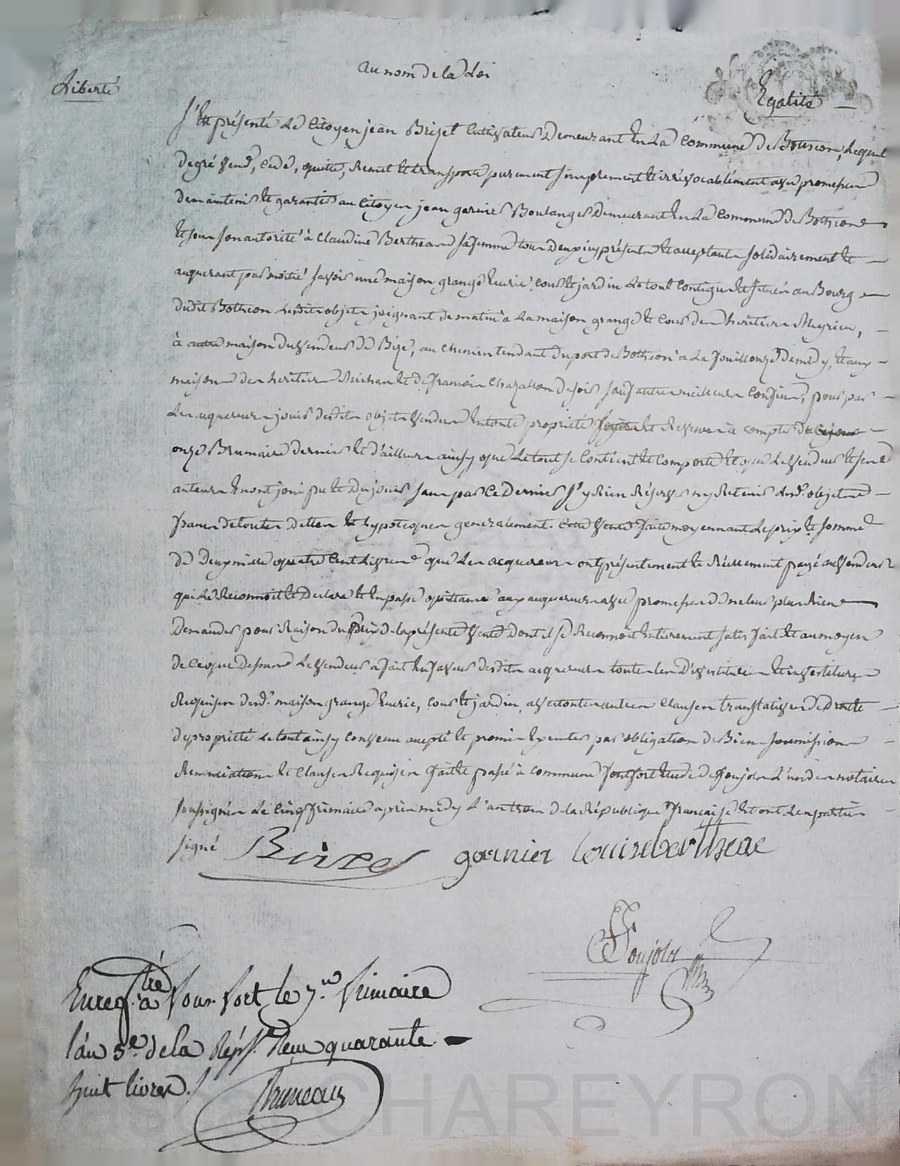 au nom de la Loi
Liberté
Egalité
S'Est présenté Le Citoyen jean Bizet Cultivateur Demeurant En La Commune De Bothéon, Lequel
de gré Vend, Cede, quitte, Remet et transporte purement simplement et irrévocablement avec promesse
de maintenir et garantir au Citoyen jean garnier Boulanger Demeurant En La Commune De Bothéon
et sous son autorité à Claudine Bertheas sa femme tous deux icy présents et acceptant solidairement et
aquerant par moitié savoir une maison grange Ecurie, cour et jardin Le tout Contigu et situés au Bourg
dudit Bothéon Lesdits objets joignant de matin à La maison grange et Cour des heritiers Meyrieu,
à autre maison du Vendeur De Bize, au chemin tendant du port de Bothéon à La fouillouze de midy, et aux
maison des heritiers et de francois Chazallon de soir sauf autres meilleurs Confins, pour par
Les aquereurs jouir desdits objets Vendus En toute propriété et Revenus à compter du
onze Brumaire dernier et d'ailleurs ainsy que Le tout se Contient et Comporte et que Le Vendeur et ses
auteurs En ont joui pu et du jouir sans par Ce Dernier S'y Rien Réserver ny Retenir desd. objets
francs de toutes dettes et hypoteques generalement. Cette Vente faite moyennant Le prix et somme
De Deux mille quatre Cent Livres que Les acquereurs ont présentement et Réellement payé au Vendeur
qui Le Reconnoit et Declare et En passe quittance aux aquereurs avec promesse De ne leur plus Rien
Demander pour Raison du prix de la présente Vente Dont il se Reconnoit Entierement satisfait et au moyen
de Ce que dessus Le Vendeur a fait En faveur desdits acquereurs toutes Les Devestitures et investitures
Requises desd. maison grange Ecurie, cour et jardin, avec toutes autres Clauses translatives de Droits
de propriété Le tout ainsy Convenu accepté et promis Executer par obligation de Biens soumissions
Renonciations et Clauses Requises fait et passé à commune fontfort Etude de foujols L'un des notaires
soussignés Le Cinq frimaire après midy L'an trois de la République française et ont Les parties
signé Bizet garnier louise bertheas
Foujols
Enregtré à Fonsfort le 7e frimaire
l'an 3e de la Répe. Reçu quarante
huit livres.
Bruneau
CHAREYRON